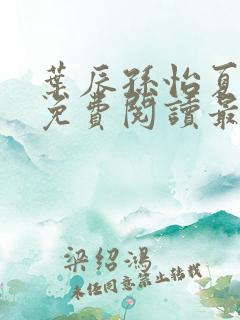 葉辰孫怡夏
免費閱讀最
梁紹鴻
未經同意禁止轉載